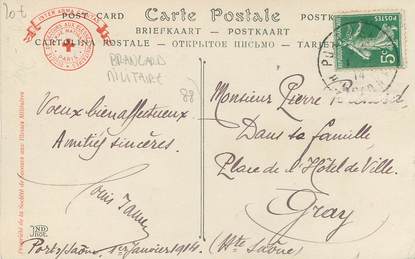 lot
INTER ARMA CARITAS
PARIS
POST CARD Carte Postale POSTKAART
BRIEFKAART - POSTKAART
CARTOLINA POSTALE - ОТКРЫТОЕ ПИСЬМО - TARJETA
BRANCARD
MILITAIRE
88
5
14
Propriété de la Société de Secours aux Blessés Militaires
Voeux bien affectueux
Amitiés sincères.
Louis
ND
Phot.
Port s/Saône 1er Janvier 1914.
Monsieur Pierre
Dans sa famille
Place de l'Hôtel de Ville.
Gray
(Hte Saône)